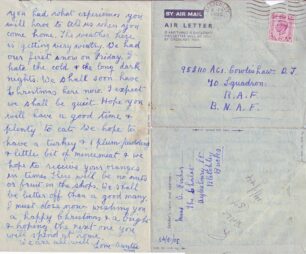 you had what experiences you
will have to tell us when you
come home. The weather here
is getting very wintry. We had
our first snow on Friday. I
hate the cold & the long dark
nights. We shall soon have
Christmas here now. I expect
we shall be quiet. Hope you
will have a good time &
plenty to eat. We hope to
have a turkey & 1 plum pudding
& little bit of mincemeat & we
hope to receive your oranges
in time. There will be no nuts
or fruit in the shops. We shall
be better off than a good many.
I must close now wishing you
a happy Christmas & a bright
& hoping the next one you
will spend at home.
We are all well. Love
BY AIR MAIL
AIR LETTER
IF ANYTHING IS ENCLOSED
THIS LETTER WILL BE SENT
BY ORDINARY MAIL
Gowleshaw. D. J
70 Squadron.
R.A.F.
B.N.A.F.